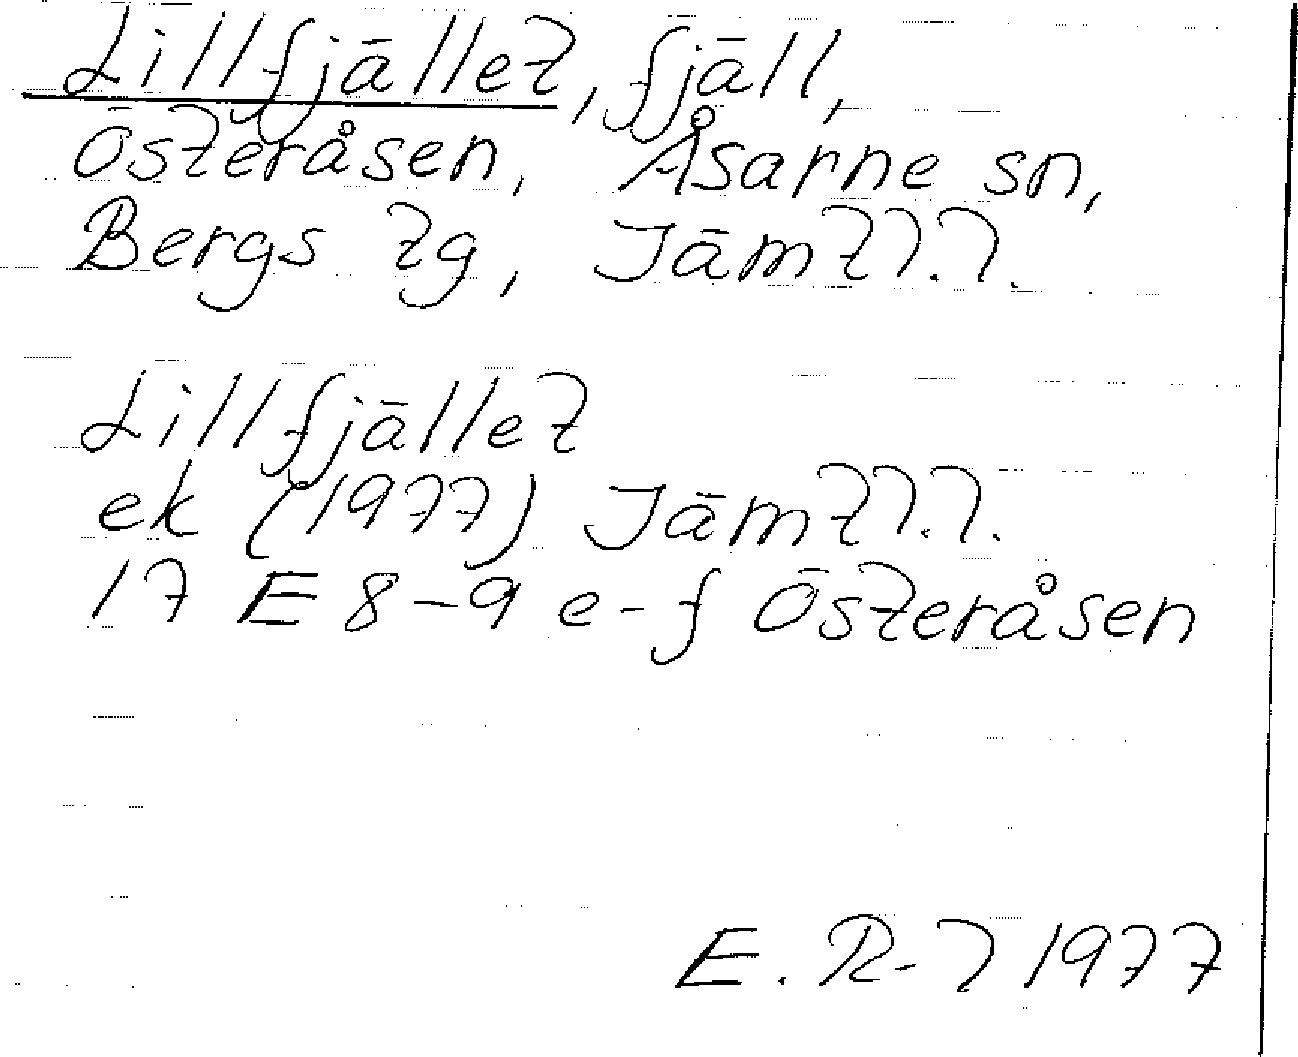 Lillfjället, fjäll,
Österåsen, Åsarne sn,
Bergs tg, Jämtl.l.
Lillfjället
ek (1977) Jämtl.l.
17 E 8-9 e-f Österåsen
E. R-J 1977